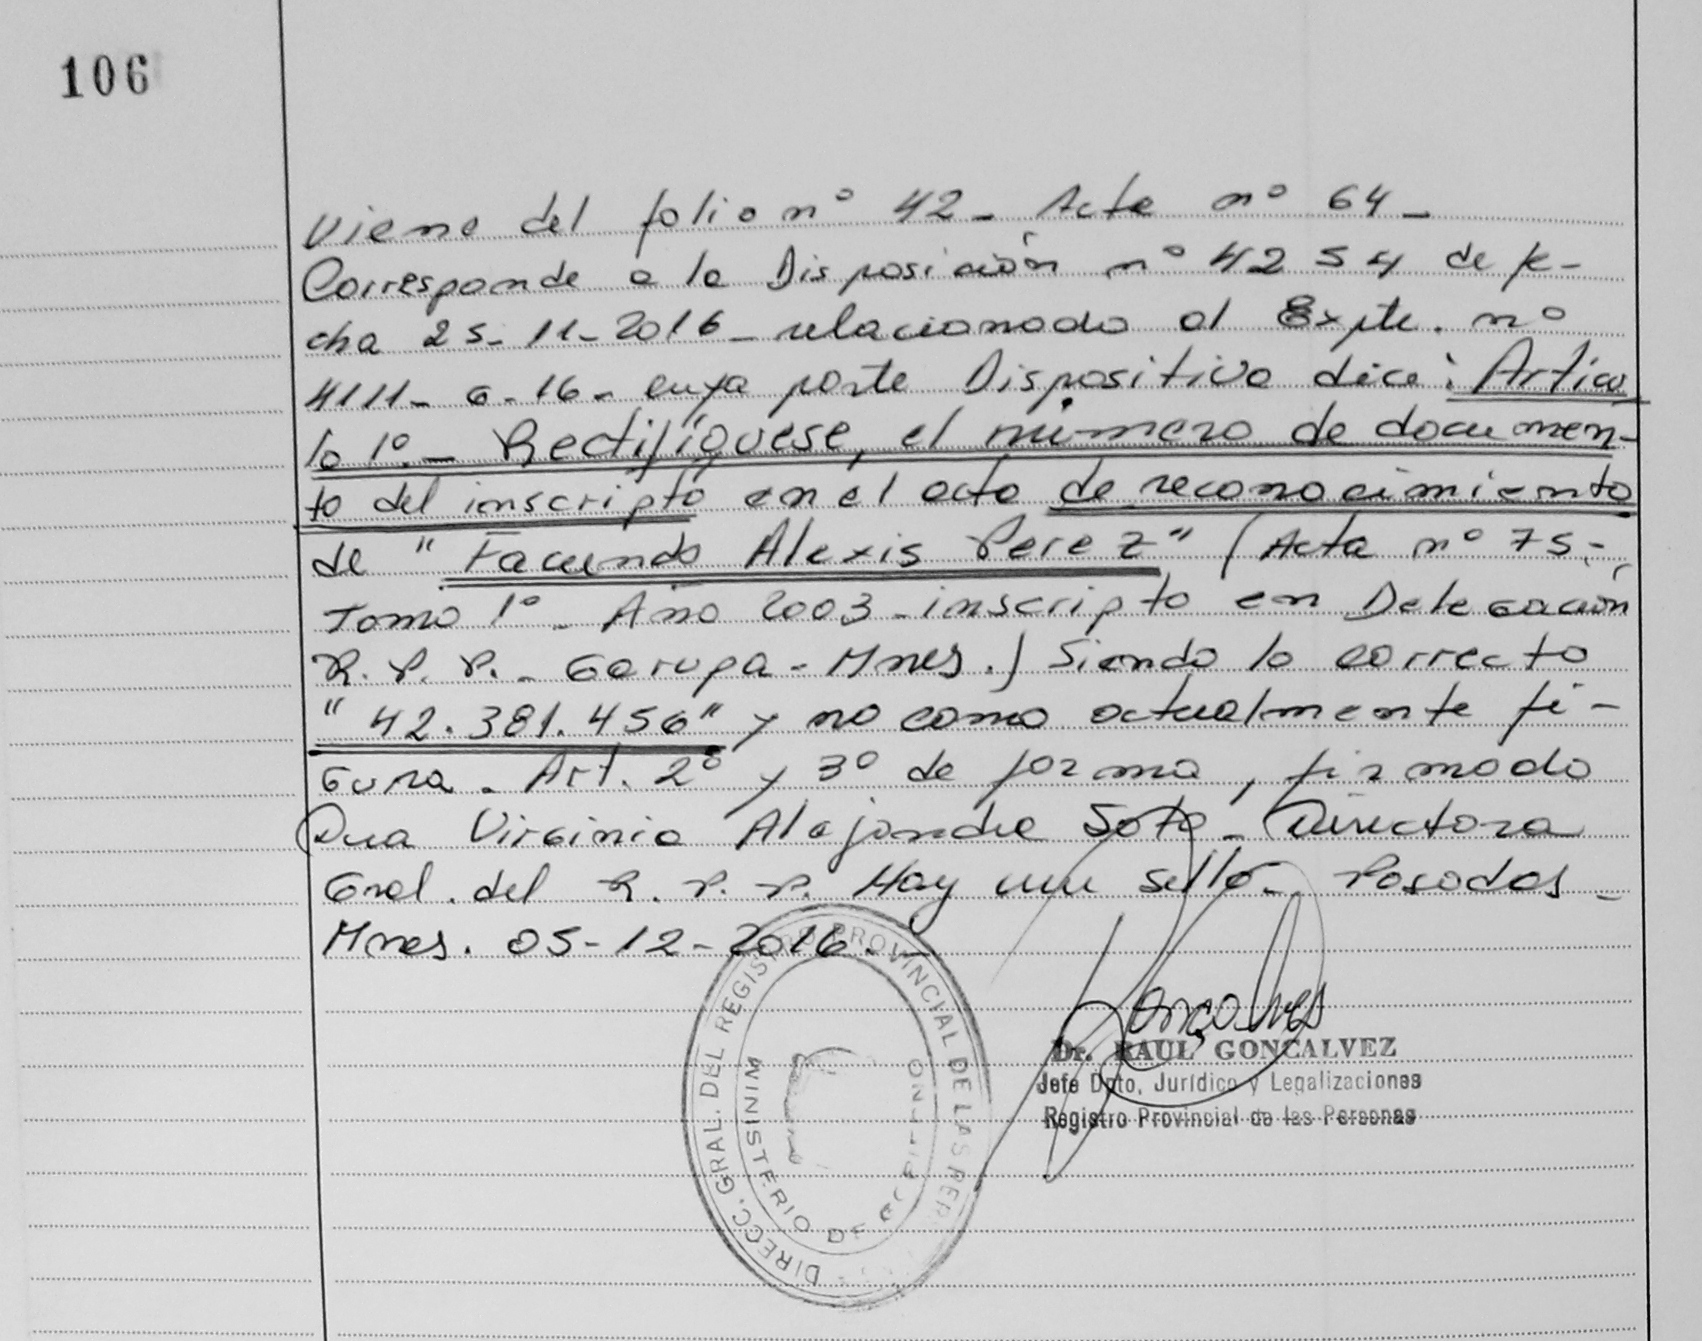 106
Viene del folio nº 42 - Acta nº 64 -
Corresponde a la Disposición nº 4254 de fe-
cha 25-11-2016 - relacionado al Expte. nº
4111- G-16- cuya parte Dispositiva dice: Artícu
lo 1º.- Rectifíquese, el número de documen-
to del inscripto en el acta de reconocimiento
de "Facundo Alexis Perez" (Acta nº 75-
Tomo 1º - Año 2003 - inscripto en Delegación
R. P. P. - Garupa - Mnes.) Siendo lo correcto
"42.381.456" y no como actualmente fi-
gura. Art. 2º y 3º de forma, firmado
Dra Virginia Alejandra Soto - Directora
Gral. del R. P. P. Hay un sello - Posadas -
Mnes. 05-12-2016.
DIRECC. GRAL. DEL REGISTRO PROVINCIAL DE LAS PER
MINISTERIO DE GOBIERNO
Goncalves
Dr. RAUL GONCALVEZ
Jefe Dpto, Jurídico y Legalizaciones
Registro Provincial de las Personas